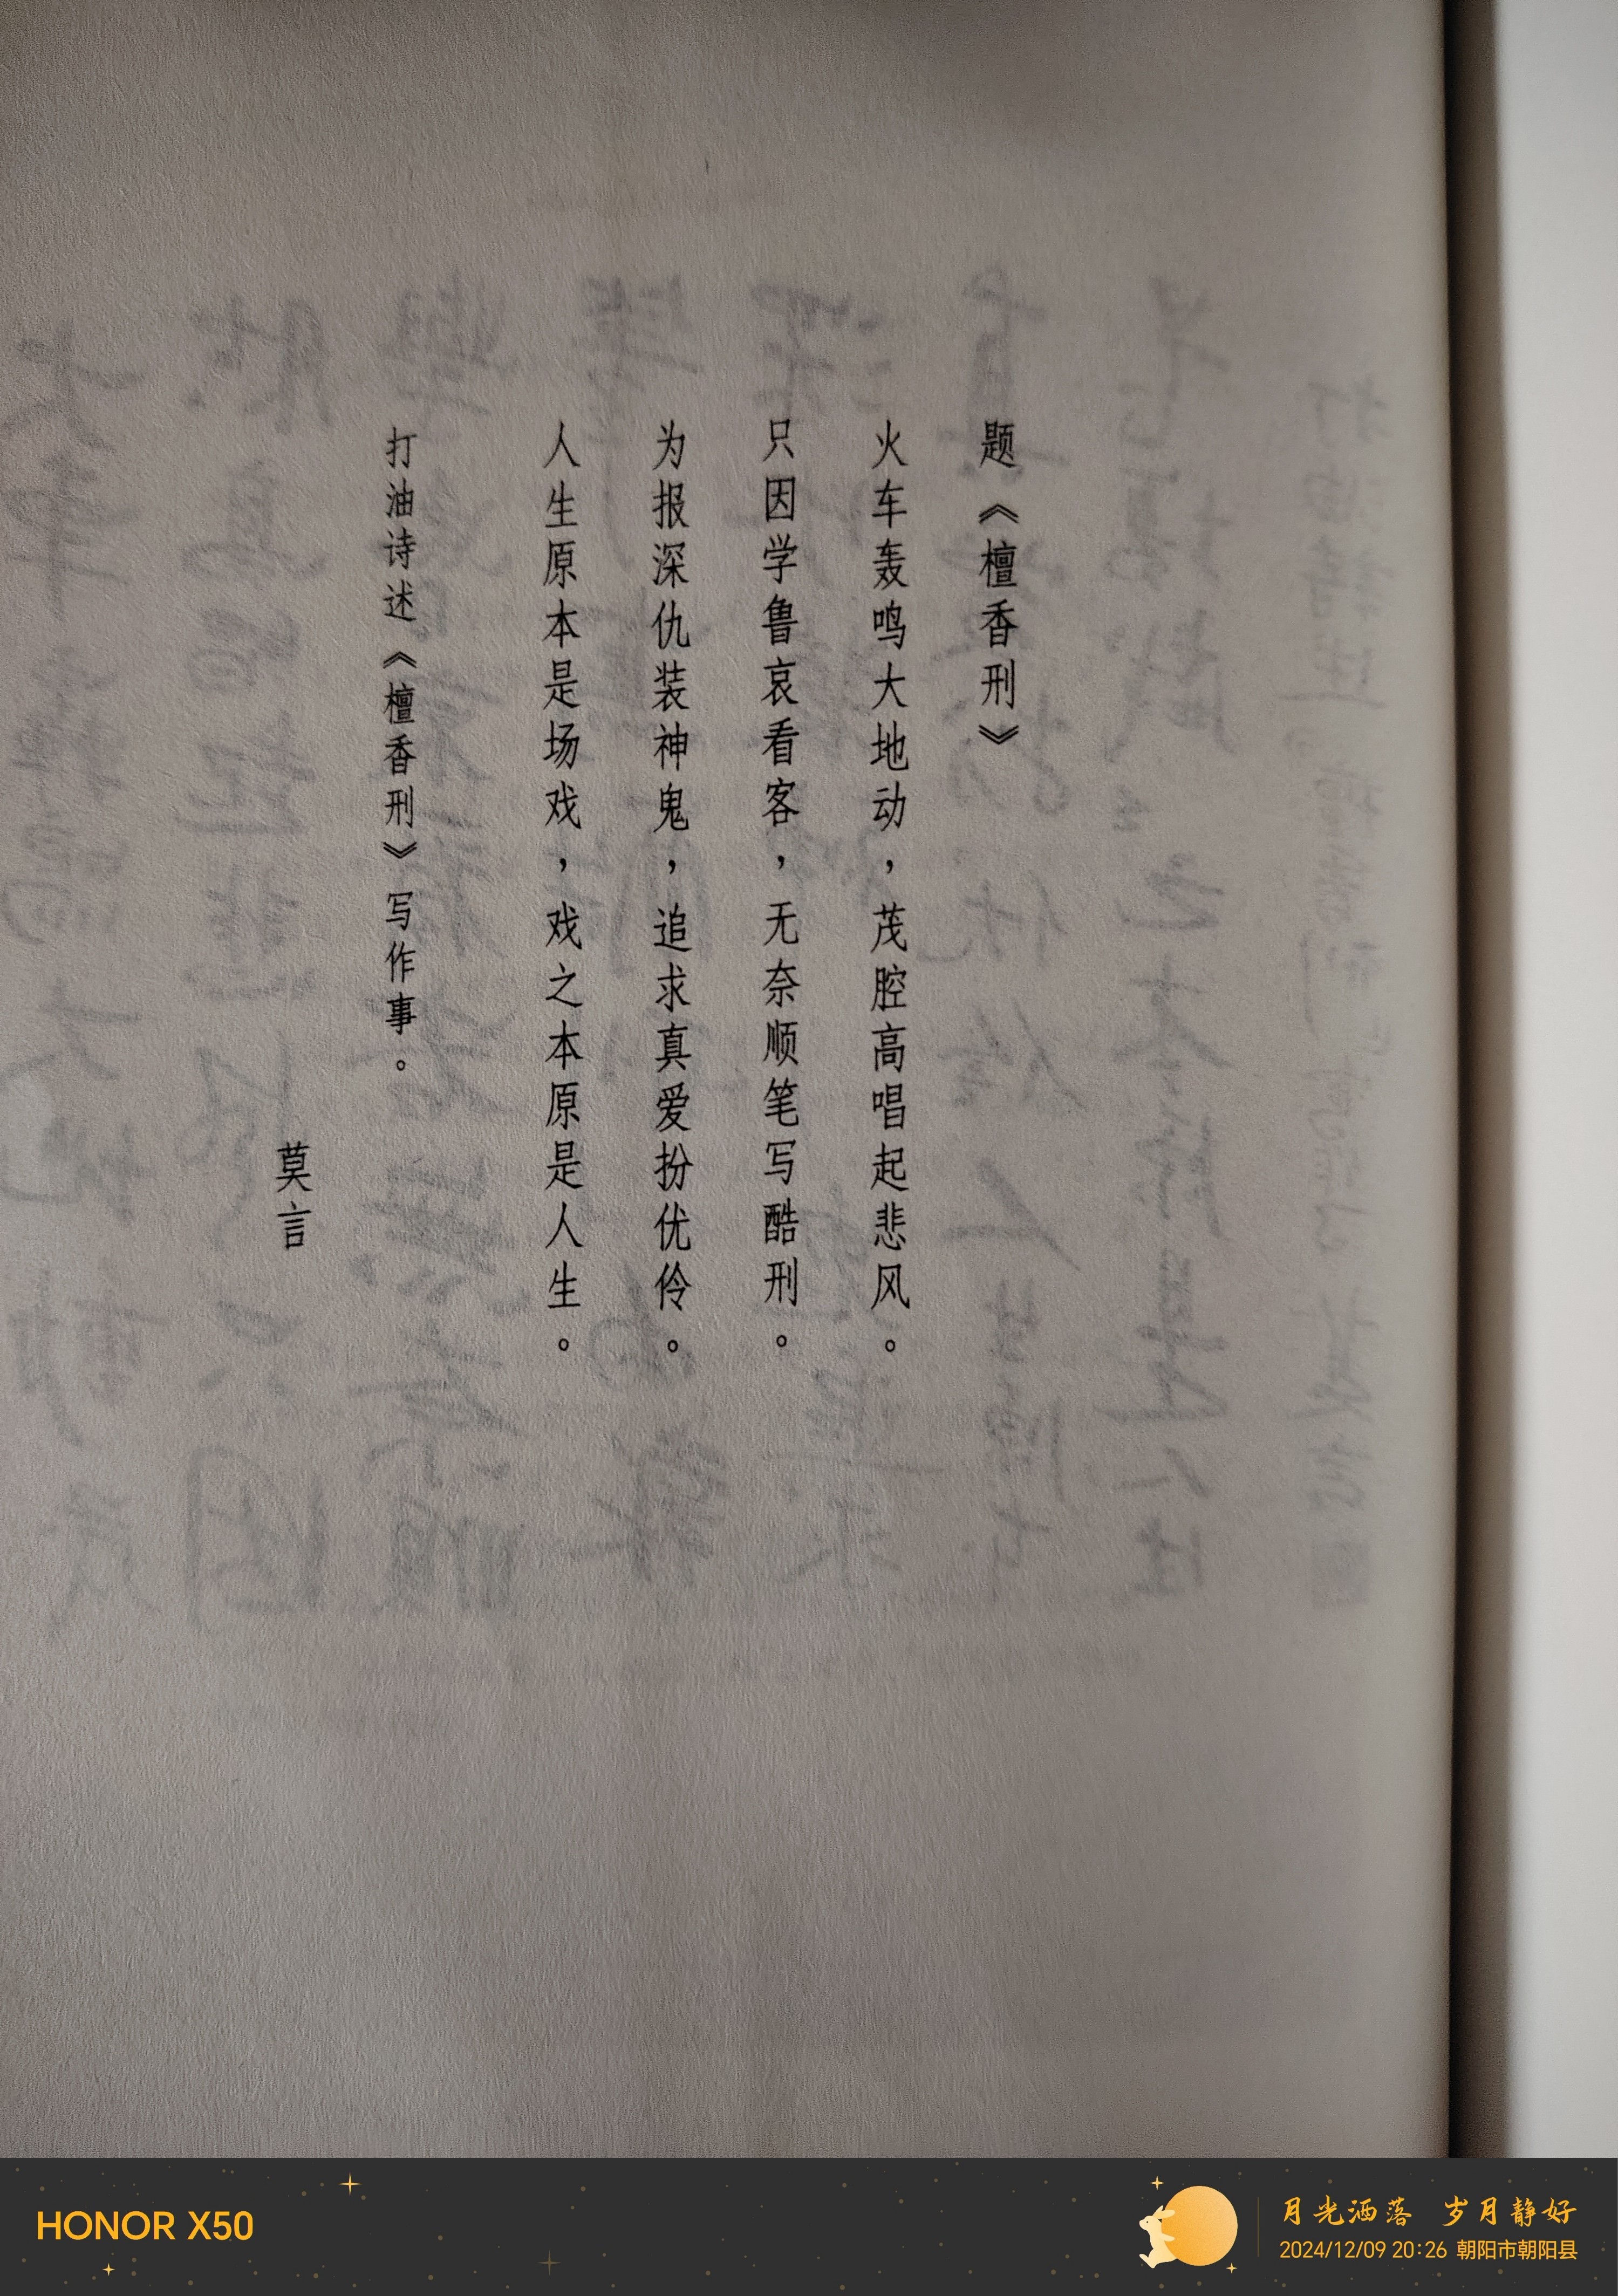 题《檀香刑》
火车轰鸣大地动，茂腔高唱起悲风。
只因学鲁哀看客，无奈顺笔写酷刑。
为报深仇装神鬼，追求真爱扮优伶。
人生原本是场戏，戏之本原是人生。
打油诗述《檀香刑》写作事。
莫言
HONOR X50
月光洒落 岁月静好
2024/12/09 20:26 朝阳市朝阳县